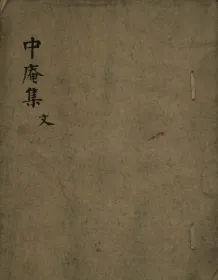 中庵集 文